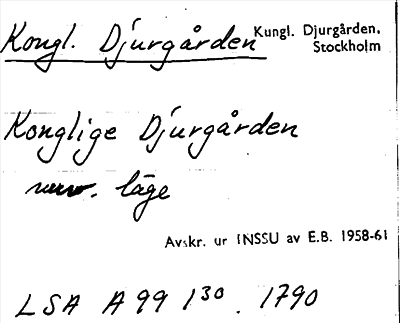 Kongl. Djurgården
Kungl. Djurgården.
Stockholm
Konglige Djurgården
nuv. läge
Avskr. ur INSSU av E.B. 1958-61
LSA A 99 1³⁰. 1790